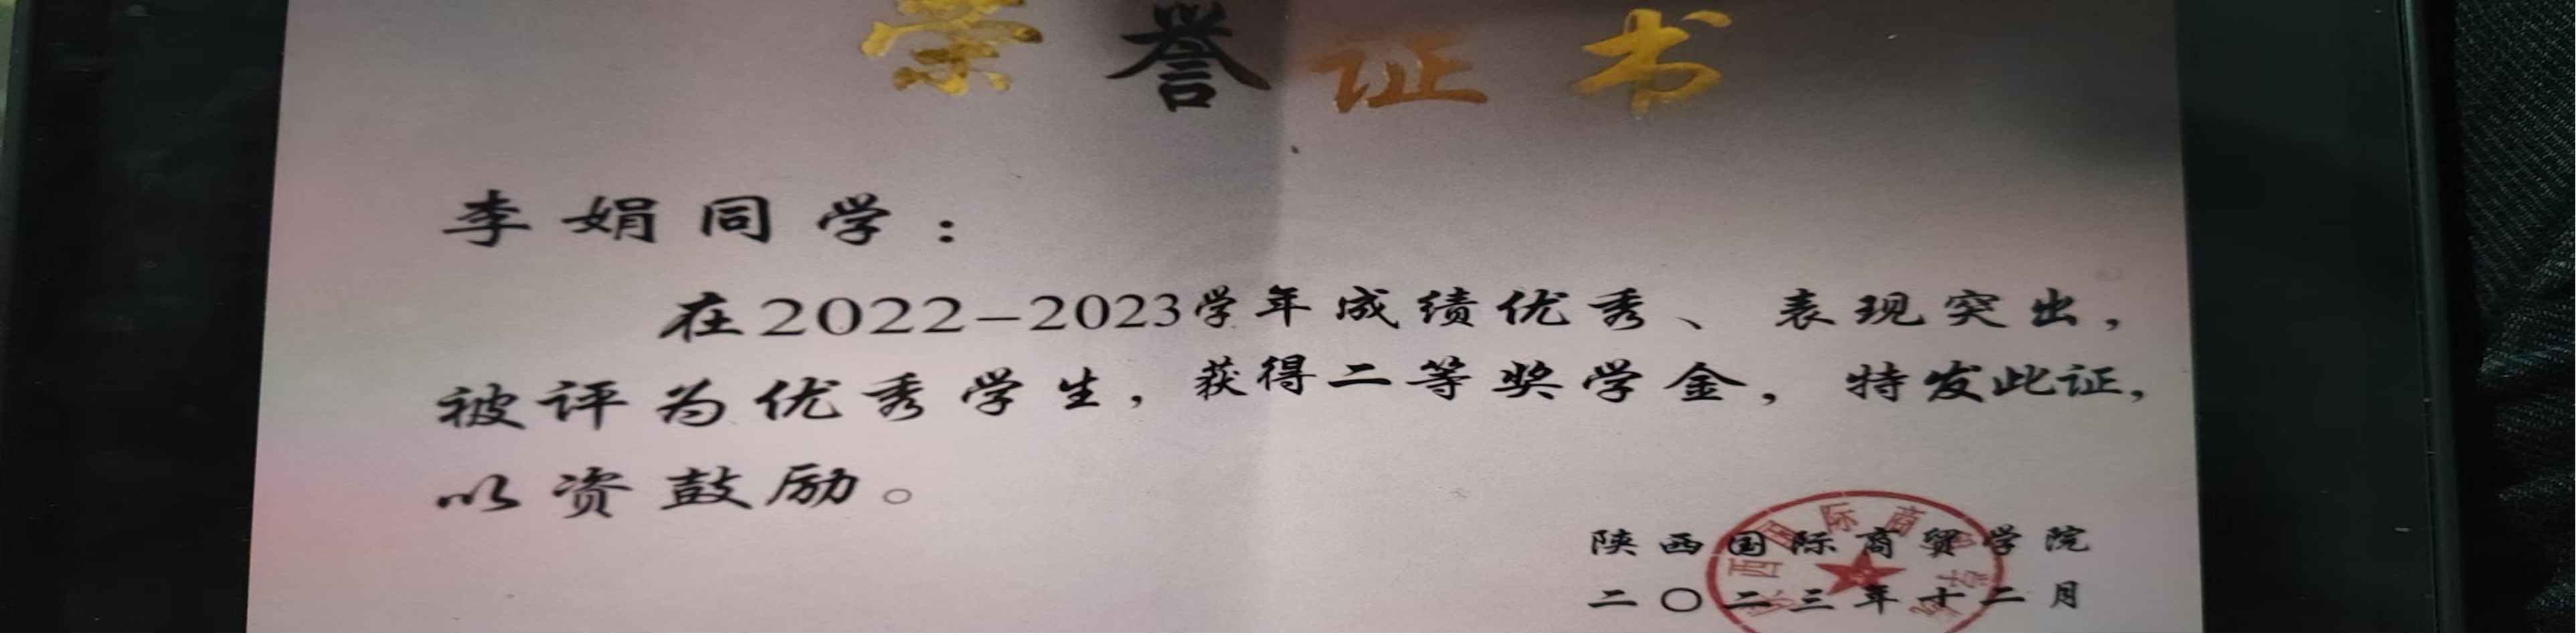 荣誉证书
李娟同学：
在2022-2023学年成绩优秀、表现突出，
被评为优秀学生，获得二等奖学金，特发此证，
以资鼓励。
陕西国际商贸学院
二〇二三年十二月